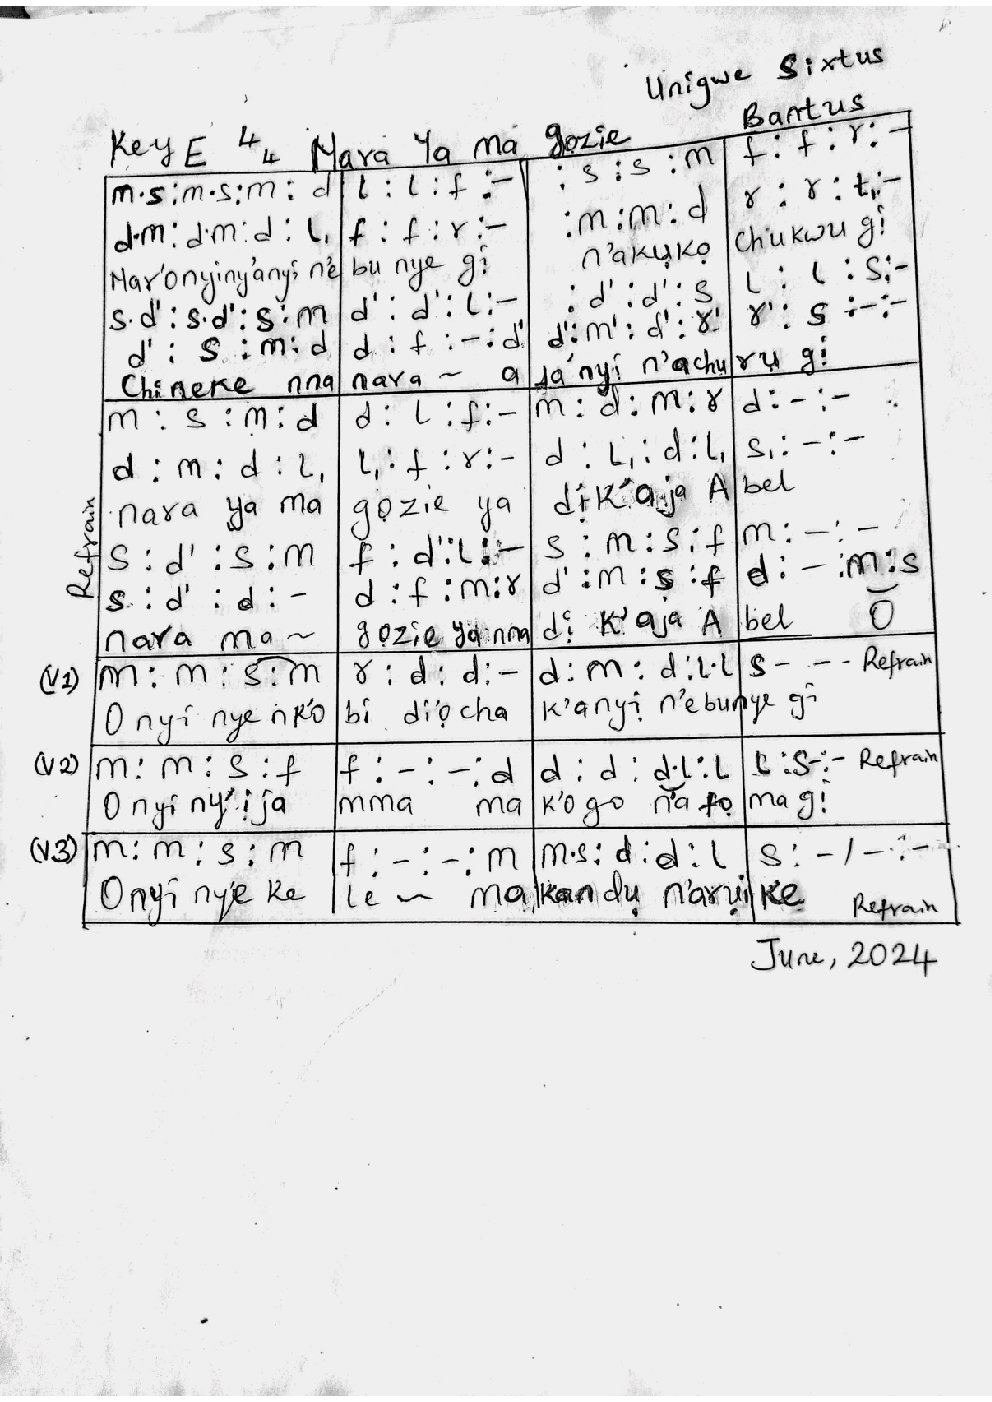 Unigwe Sixtus
Bantus
Key E 4/4 Nara Ya ma gọzie
m.s:m.s:m:d | l:l:f:- | :s:s:m | f:f:r:-
d.m:d.m:d:l, | f:f:r:- | :m:m:d | r:r:t,:-
Nar'onyinyanyi n'e bu nye gi n'akụkọ chukwu gi
s.d':s.d':s:m | d':d':l:- | :d':d':s | l:l:s:-
d':s:m:d | d:f:-:d' | d':m':d':r' | r':s:-:-
Chineke nna nara ~ a ja'nyi n'achụ rụ gi
Refrain
m:s:m:d | d:l:f:- | m:d:m:r | d:-:-
d:m:d:l, | l,:f:r:- | d:l,:d:l, | s,:-:-
nara ya ma gọzie ya dị k'aja A bel
s:d':s:m | f:d':l:- | s:m:s:f | m:-:-
s:d':d:- | d:f:m:r | d':m:s:f | d:-:m:s
nara ma ~ gọzie ya nna dị k'aja A bel O
(V1) m:m:s:m | r:d:d:- | d:m:d:l.l | s - - - Refrain
O nyi nye nk'o bi diọcha k'anyị n'ebunye gi
(V2) m:m:s:f | f:-:-:d | d:d:d.l:l | l:s-:- Refrain
O nyi ny'ija mma ma k'o go n'a fọ ma gi
(V3) m:m:s:m | f:-:-:m | m.s:d:d:l | s:-/-:-
Onyi nye ke le ~ ma kandụ n'arụi ke Refrain
June, 2024